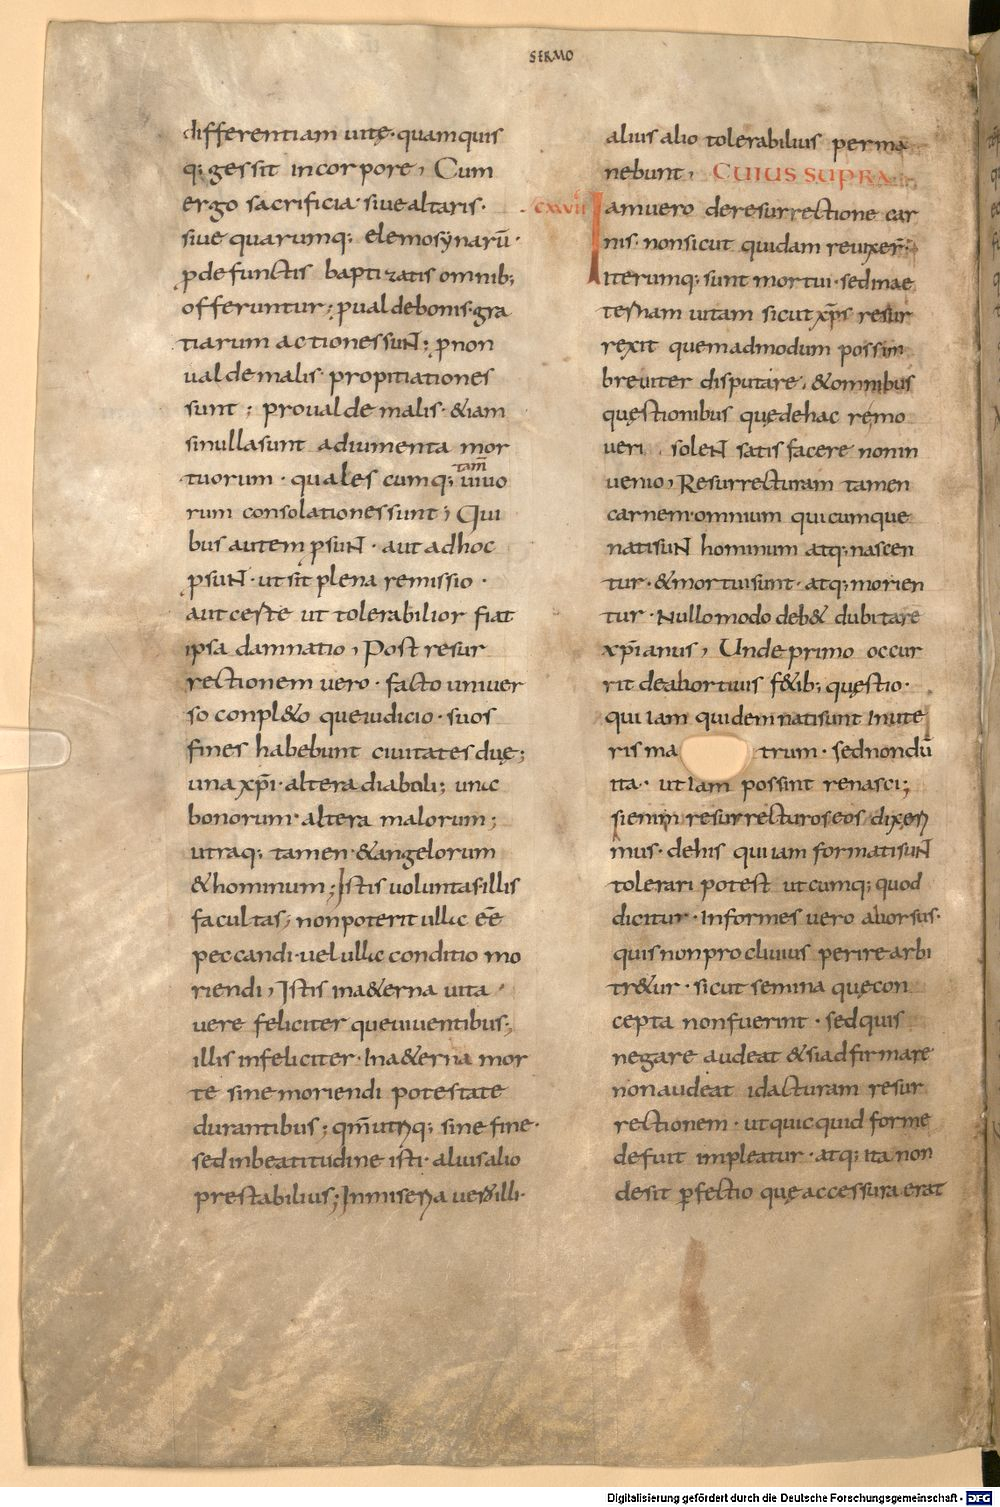 SERMO
differentiam uitę· quamquis
q; gessit incorpore, Cum
ergo sacrificia· siue altaris·
siue quarumq; elemosynarū·
ꝓdefunctis baptizatis omnib;
offeruntur; ꝓualdebonis· gra
tiarum actiones suNt; ꝓnon
ualdemalis· propitiationes
sunt; proualdemalis· &iam
sinullasunt adiumenta mor
tuorum· qualescumq; tam̄ uiuo
rum consolationes sunt; Qui
bus autem ꝓsuNt· aut adhoc
ꝓsuNt· utsit plena remissio·
aut certe ut tolerabilior fiat
ipsa damnatio, Post resur
rectionem uero· facto uniuer
so conpl&o queiudicio· suos
fines habebunt ciuitates duę;
una xp̄i· altera diaboli; una
bonorum· altera malorum;
utraq; tamen &angelorum
&hominum; Istis uoluntas· illis
facultas; nonpoterit ulla eē
peccandi· uel ulla conditio mo
riendi, Istis ina&erna uita
uere feliciter queuiuentibus;
illis infeliciter· Ina&erna mor
te sinemoriendi potestate
durantibus; qm̄ utriq; sine fine·
sed inbeatitudine isti· alius alio
prestabilius; Inmiseria uero illi·
alius alio tolerabilius perma
nebunt, CUIUS SUPRA
CXVII Iamuero deresurrectione car
nis· nonsicut quidam reuixer̄·
iterumq; sunt mortui· sed inae
ternam uitam sicut xp̄s resur
rexit quemadmodum possim
breuiter disputare, &omnibus
quęstionibus quędehac remo
ueri soleNt satisfacere nonin
uenio, Resurrecturam tamen
carnem· omnium quicumque
nati suNt hominum atq; nascen
tur· &mortuisunt· atq; morien
tur· Nullomodo deb& dubitare
xp̄ianus, Unde primo occur
rit deabortiuis f&ib; quęstio·
qui iam quidem nati sunt Inute
ris ma trum· sednondū
ita· ut iam possint renasci;
si enim resurrecturos eos dixeri
mus· dehis qui iam formati suNt
tolerari potest utcumq; quod
dicitur· Informes uero aborsus·
quis nonprocliuius perire arbi
tr&ur· sicut semina quęcon
cepta nonfuerint· sedquis
negare audeat &siadfirmare
nonaudeat idacturam resur
rectionem· ut quicquid forme
defuit impleatur· atq; ita non
desit ꝑfectio quęaccessura erat
Digitalisierung gefördert durch die Deutsche Forschungsgemeinschaft - DFG